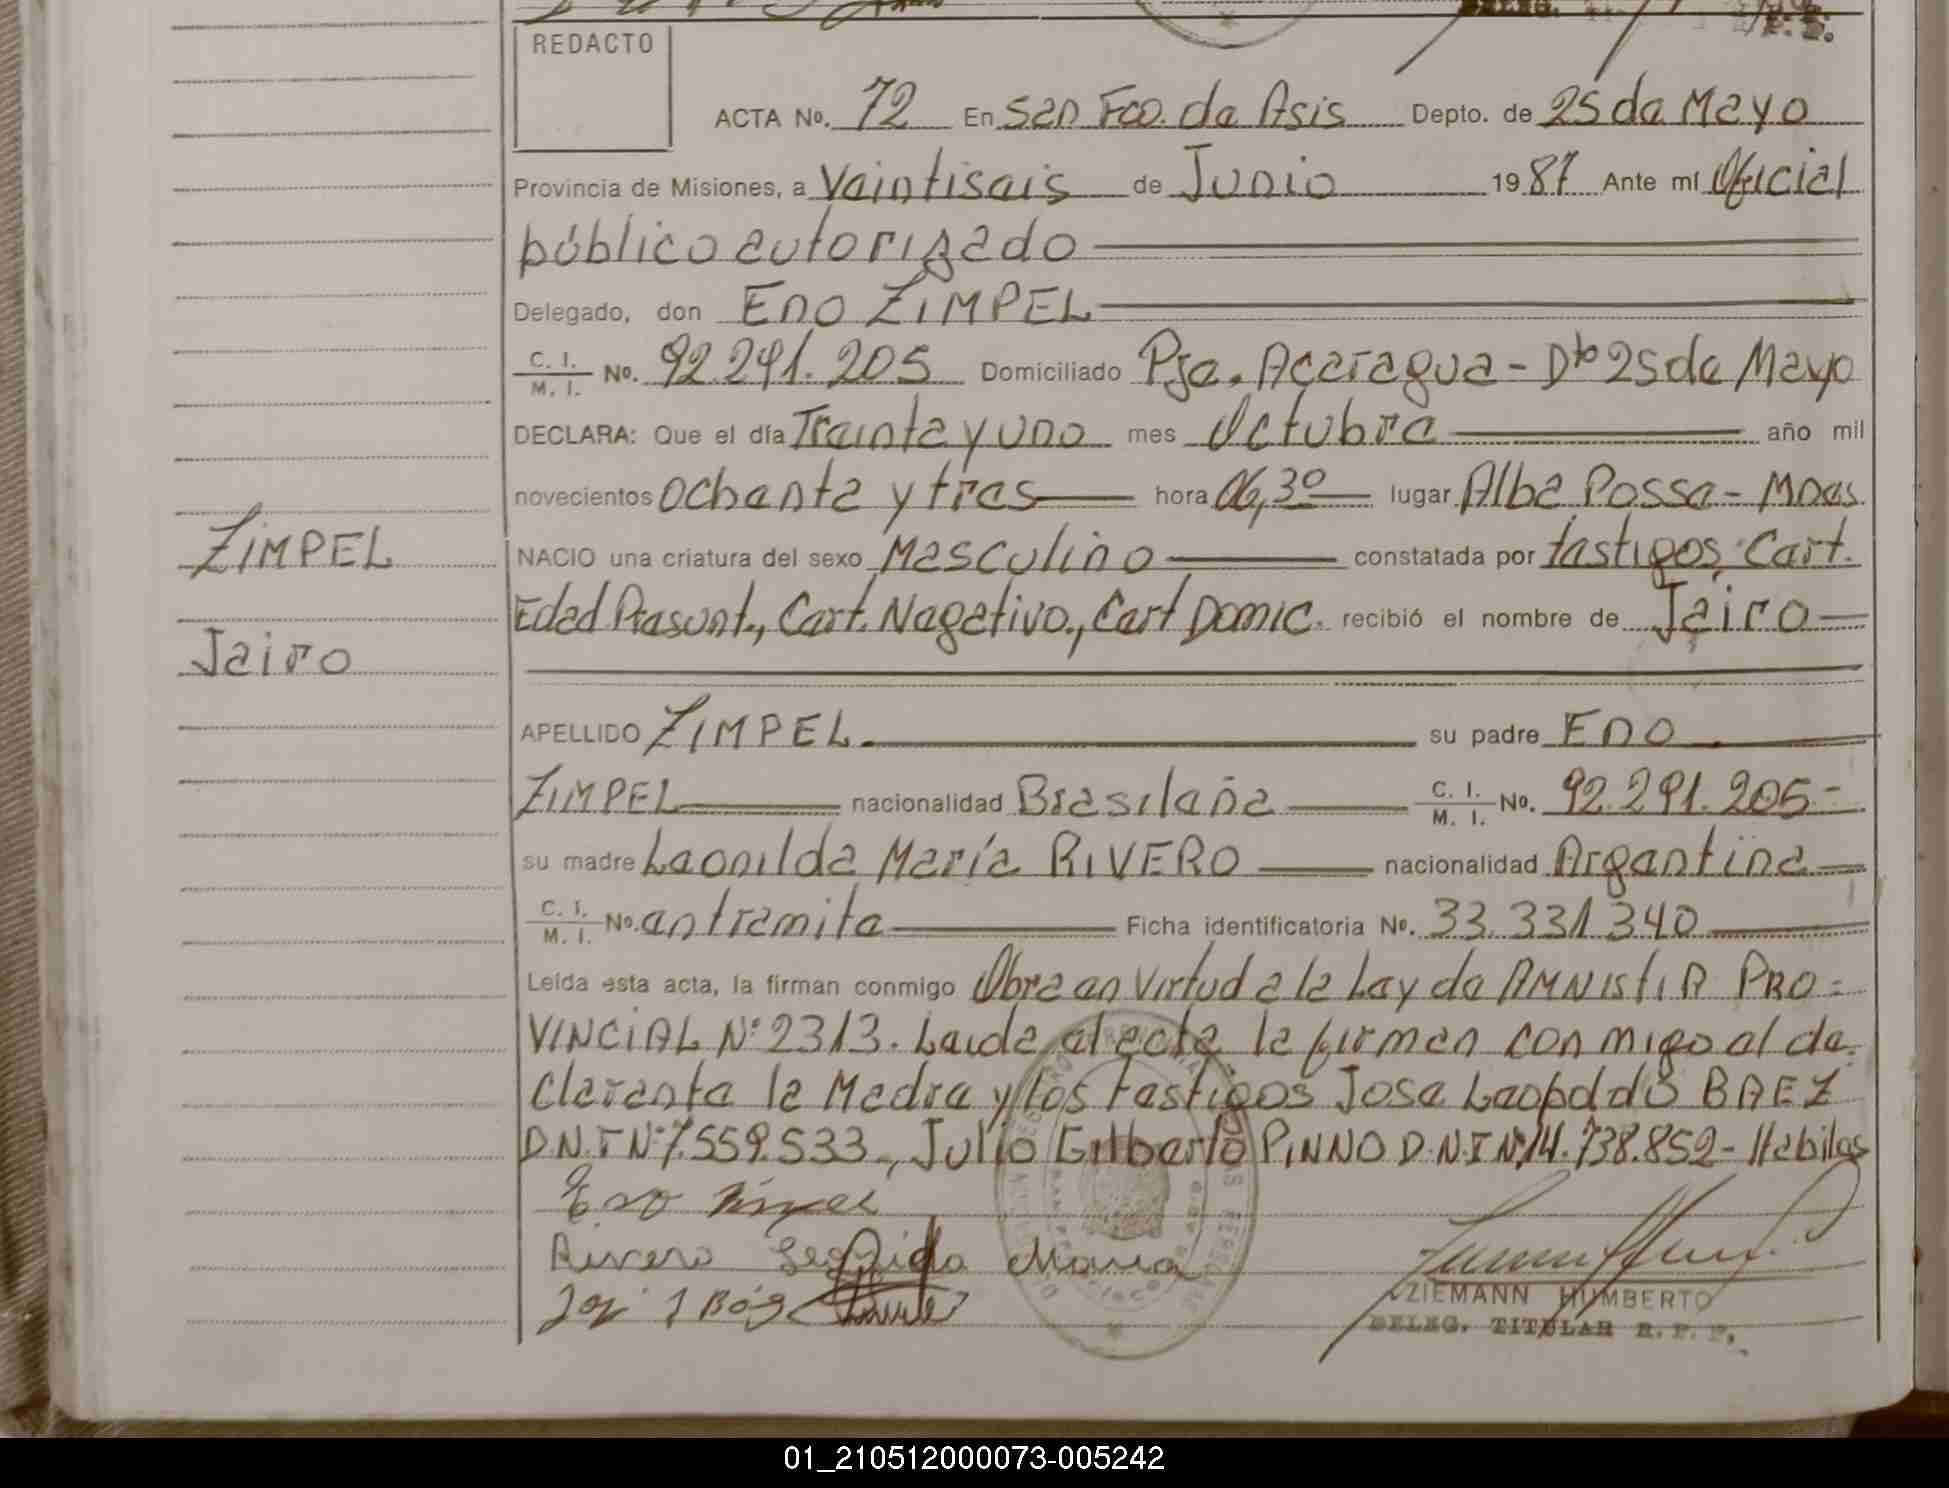 REDACTO
ACTA No. 72 En San Fco. de Asis Depto. de 25 de Mayo
Provincia de Misiones, a Veintiseis de Junio 1987 Ante mí Oficial
público autorizado
Delegado, don Eno ZIMPEL
C. I. M. I. No. 92.291.205 Domiciliado Pje. Acaragua - Dto 25 de Mayo
DECLARA: Que el día Treinta y uno mes Octubre año mil
novecientos ochenta y tres hora 06,30 lugar Alba Posse - Mnes.
ZIMPEL
NACIO una criatura del sexo Masculino constatada por testigos, Cert.
Edad Presunt., Cert. Negativo., Cert Domic. recibió el nombre de Jairo
Jairo
APELLIDO ZIMPEL su padre Eno
ZIMPEL nacionalidad Brasileña C. I. M. I. No. 92.291.205-
su madre Leonilda María RIVERO nacionalidad Argentina
C. I. M. I. No. en tramite Ficha identificatoria No. 33.331.340
Leída esta acta, la firman conmigo Obra en Virtud a la Ley de AMNISTIA PRO-
VINCIAL Nº 2313. Leida el acta la firman conmigo el de-
clarante la Madre y los testigos Jose Leopoldo BAEZ
D.N.I Nº 7.559.533., Julio Gilberto PINNO D.N.I Nº 14.738.852- Habiles
Eno Zimpel
Rivero Maria
ZIEMANN HUMBERTO
DELEG. TITULAR R. P. P.
01_210512000073-005242